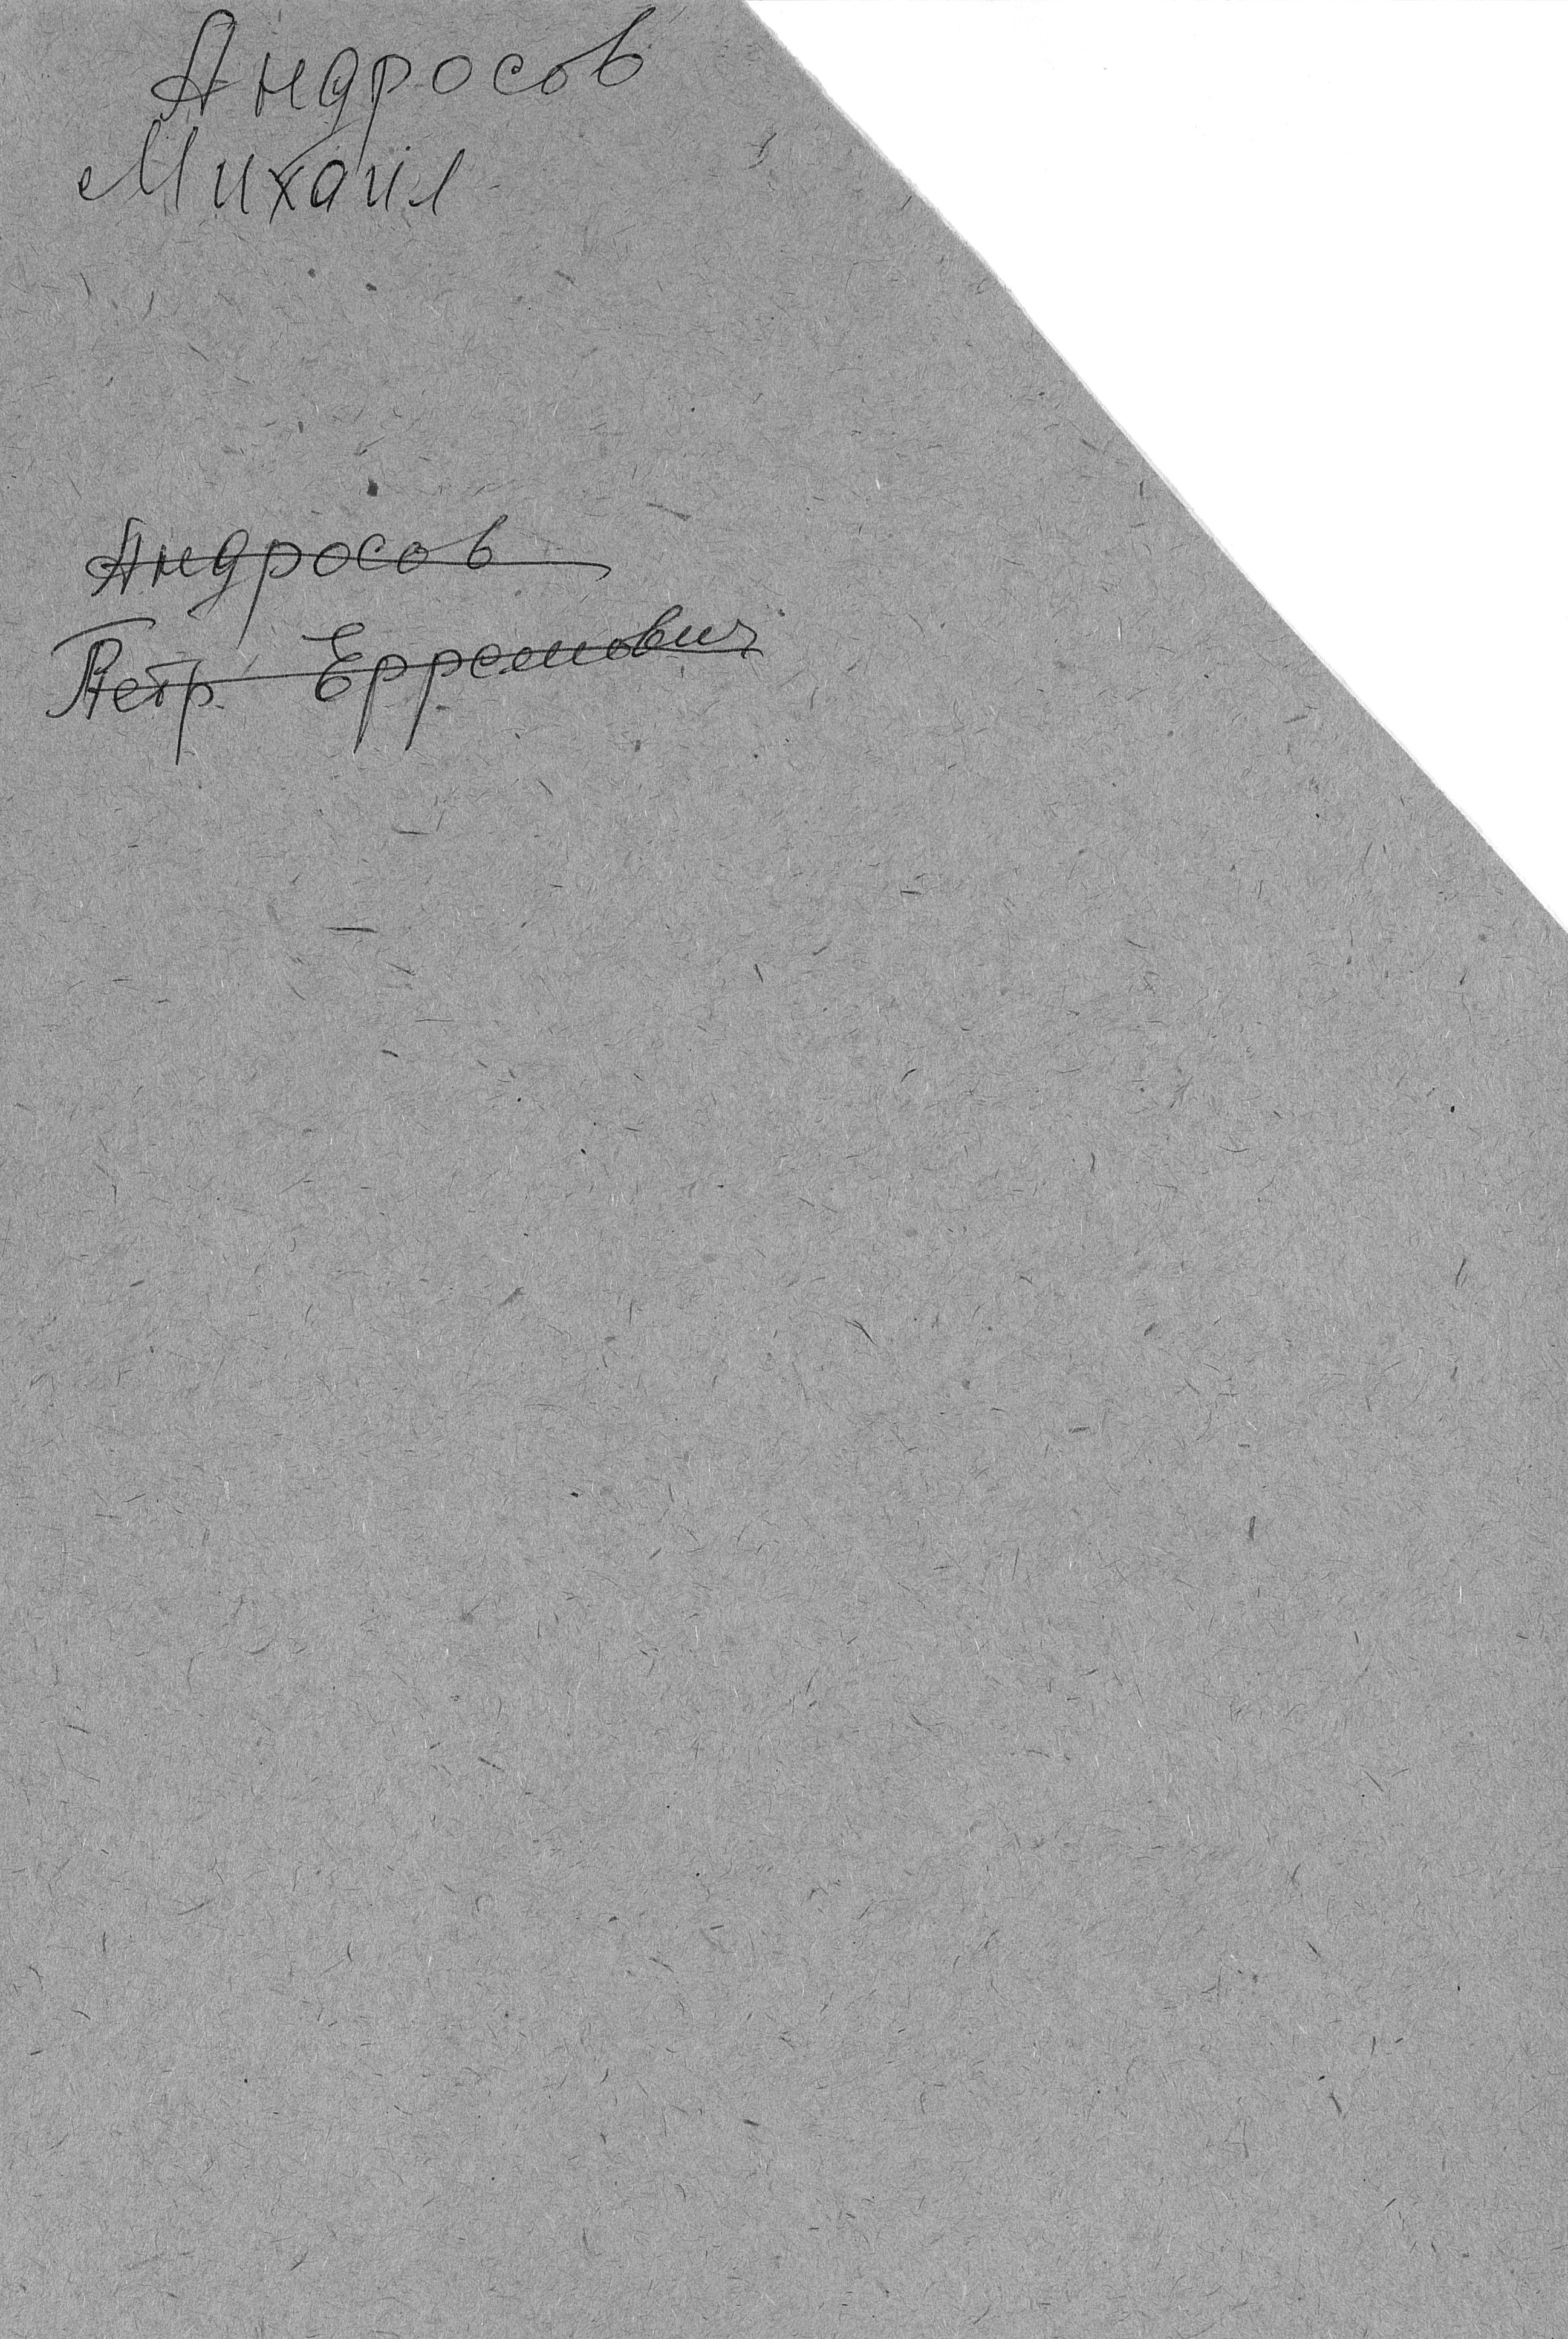 Андросов
Михаил
Андросов
Петр Ерремович